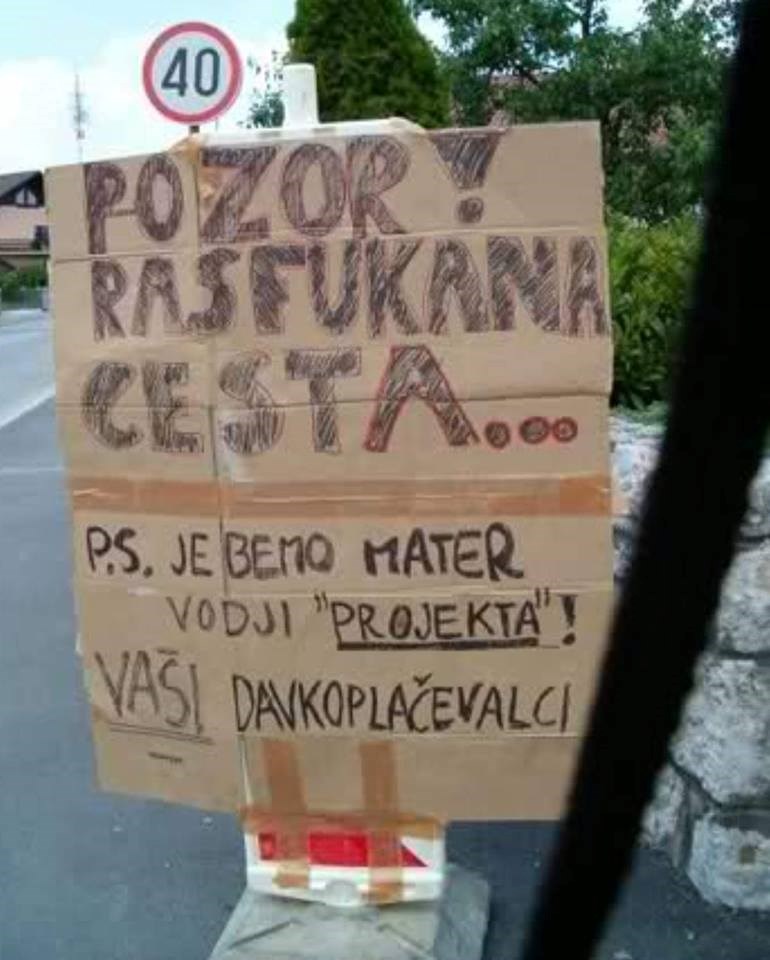 40
POZOR!
RASFUKANA
CESTA...
P.S. JEBEMO MATER
VODJI "PROJEKTA"!
VAŠI DAVKOPLAČEVALCI